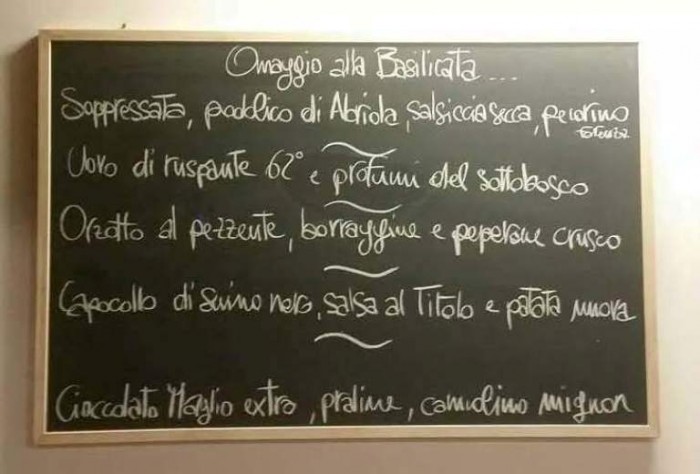 Omaggio alla Basilicata ....
Soppressata, padolico di Abriola, salsiccia secca, pecorino
Uovo di ruspante 62° e profumi del sottobosco
Orzotto al pezzente, borraggine e peperone crusco
Capocollo di suino nero, salsa al Titolo e patata nuova
Cioccolato Maglio extra, praline, cannolino mignon